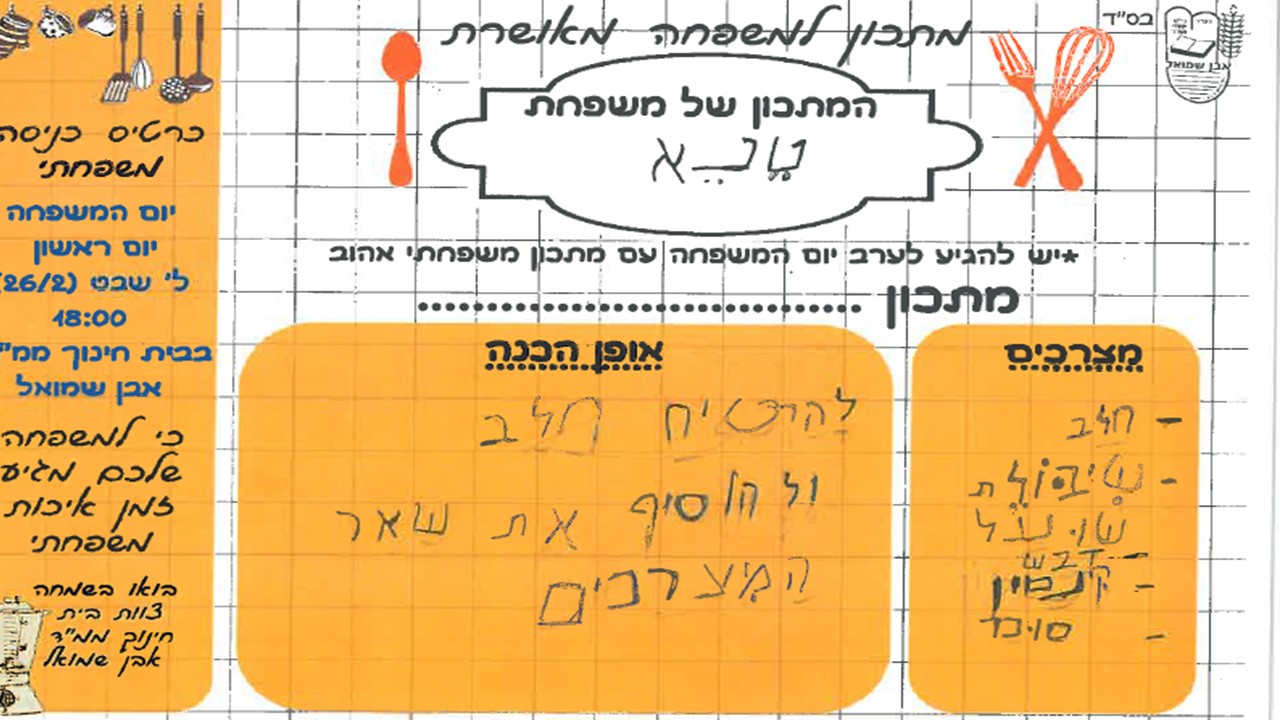 בס"ד
אבן שמואל
מתכון למשפחה מאושרת
המתכון של משפחת
*יש להגיע לערב יום המשפחה עם מתכון משפחתי אהוב
מתכון ........................................
מצרכים
- חלב
- שיבולת
שועל
- דבש
- קינמון
- סוכר
אופן הכנה
להרתיח חלב
ולהוסיף את שאר
המצרכים
כרטיס כניסה
משפחתי
יום המשפחה
יום ראשון
ל' שבט (26/2)
18:00
בבית חינוך ממ"ד
אבן שמואל
כי למשפחה
שלכם מגיע
זמן איכות
משפחתי
בואו בשמחה
צוות בית
חינוך ממ"ד
אבן שמואל